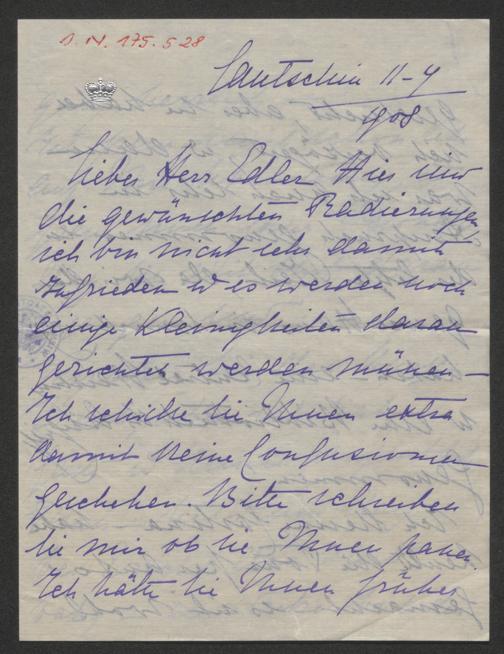 I. N. 175.528
Lautschin 11-4
908
Lieber Herr Edler Hier
die gewünschten Radierungen,
ich bin nicht sehr damit
zufrieden u es werden noch
einige Kleinigkeiten daran
gerichtet werden müssen —
Ich schicke sie Ihnen extra
damit keine Confusionen
geschehen. Bitte schreiben
Sie mir ob sie Ihnen passen.
Ich hätte sie Ihnen früher